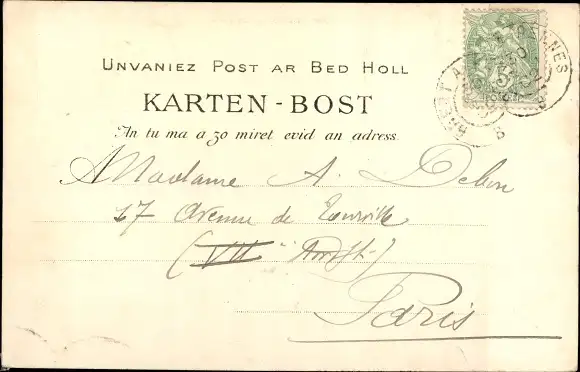 UNVANIEZ POST AR BED HOLL
KARTEN-BOST
An tu ma a zo miret evid an adress.
Madame A. Debon
17 Avenue de Tourville
(VII Arrdt)
Paris
5
BREST A RENNES